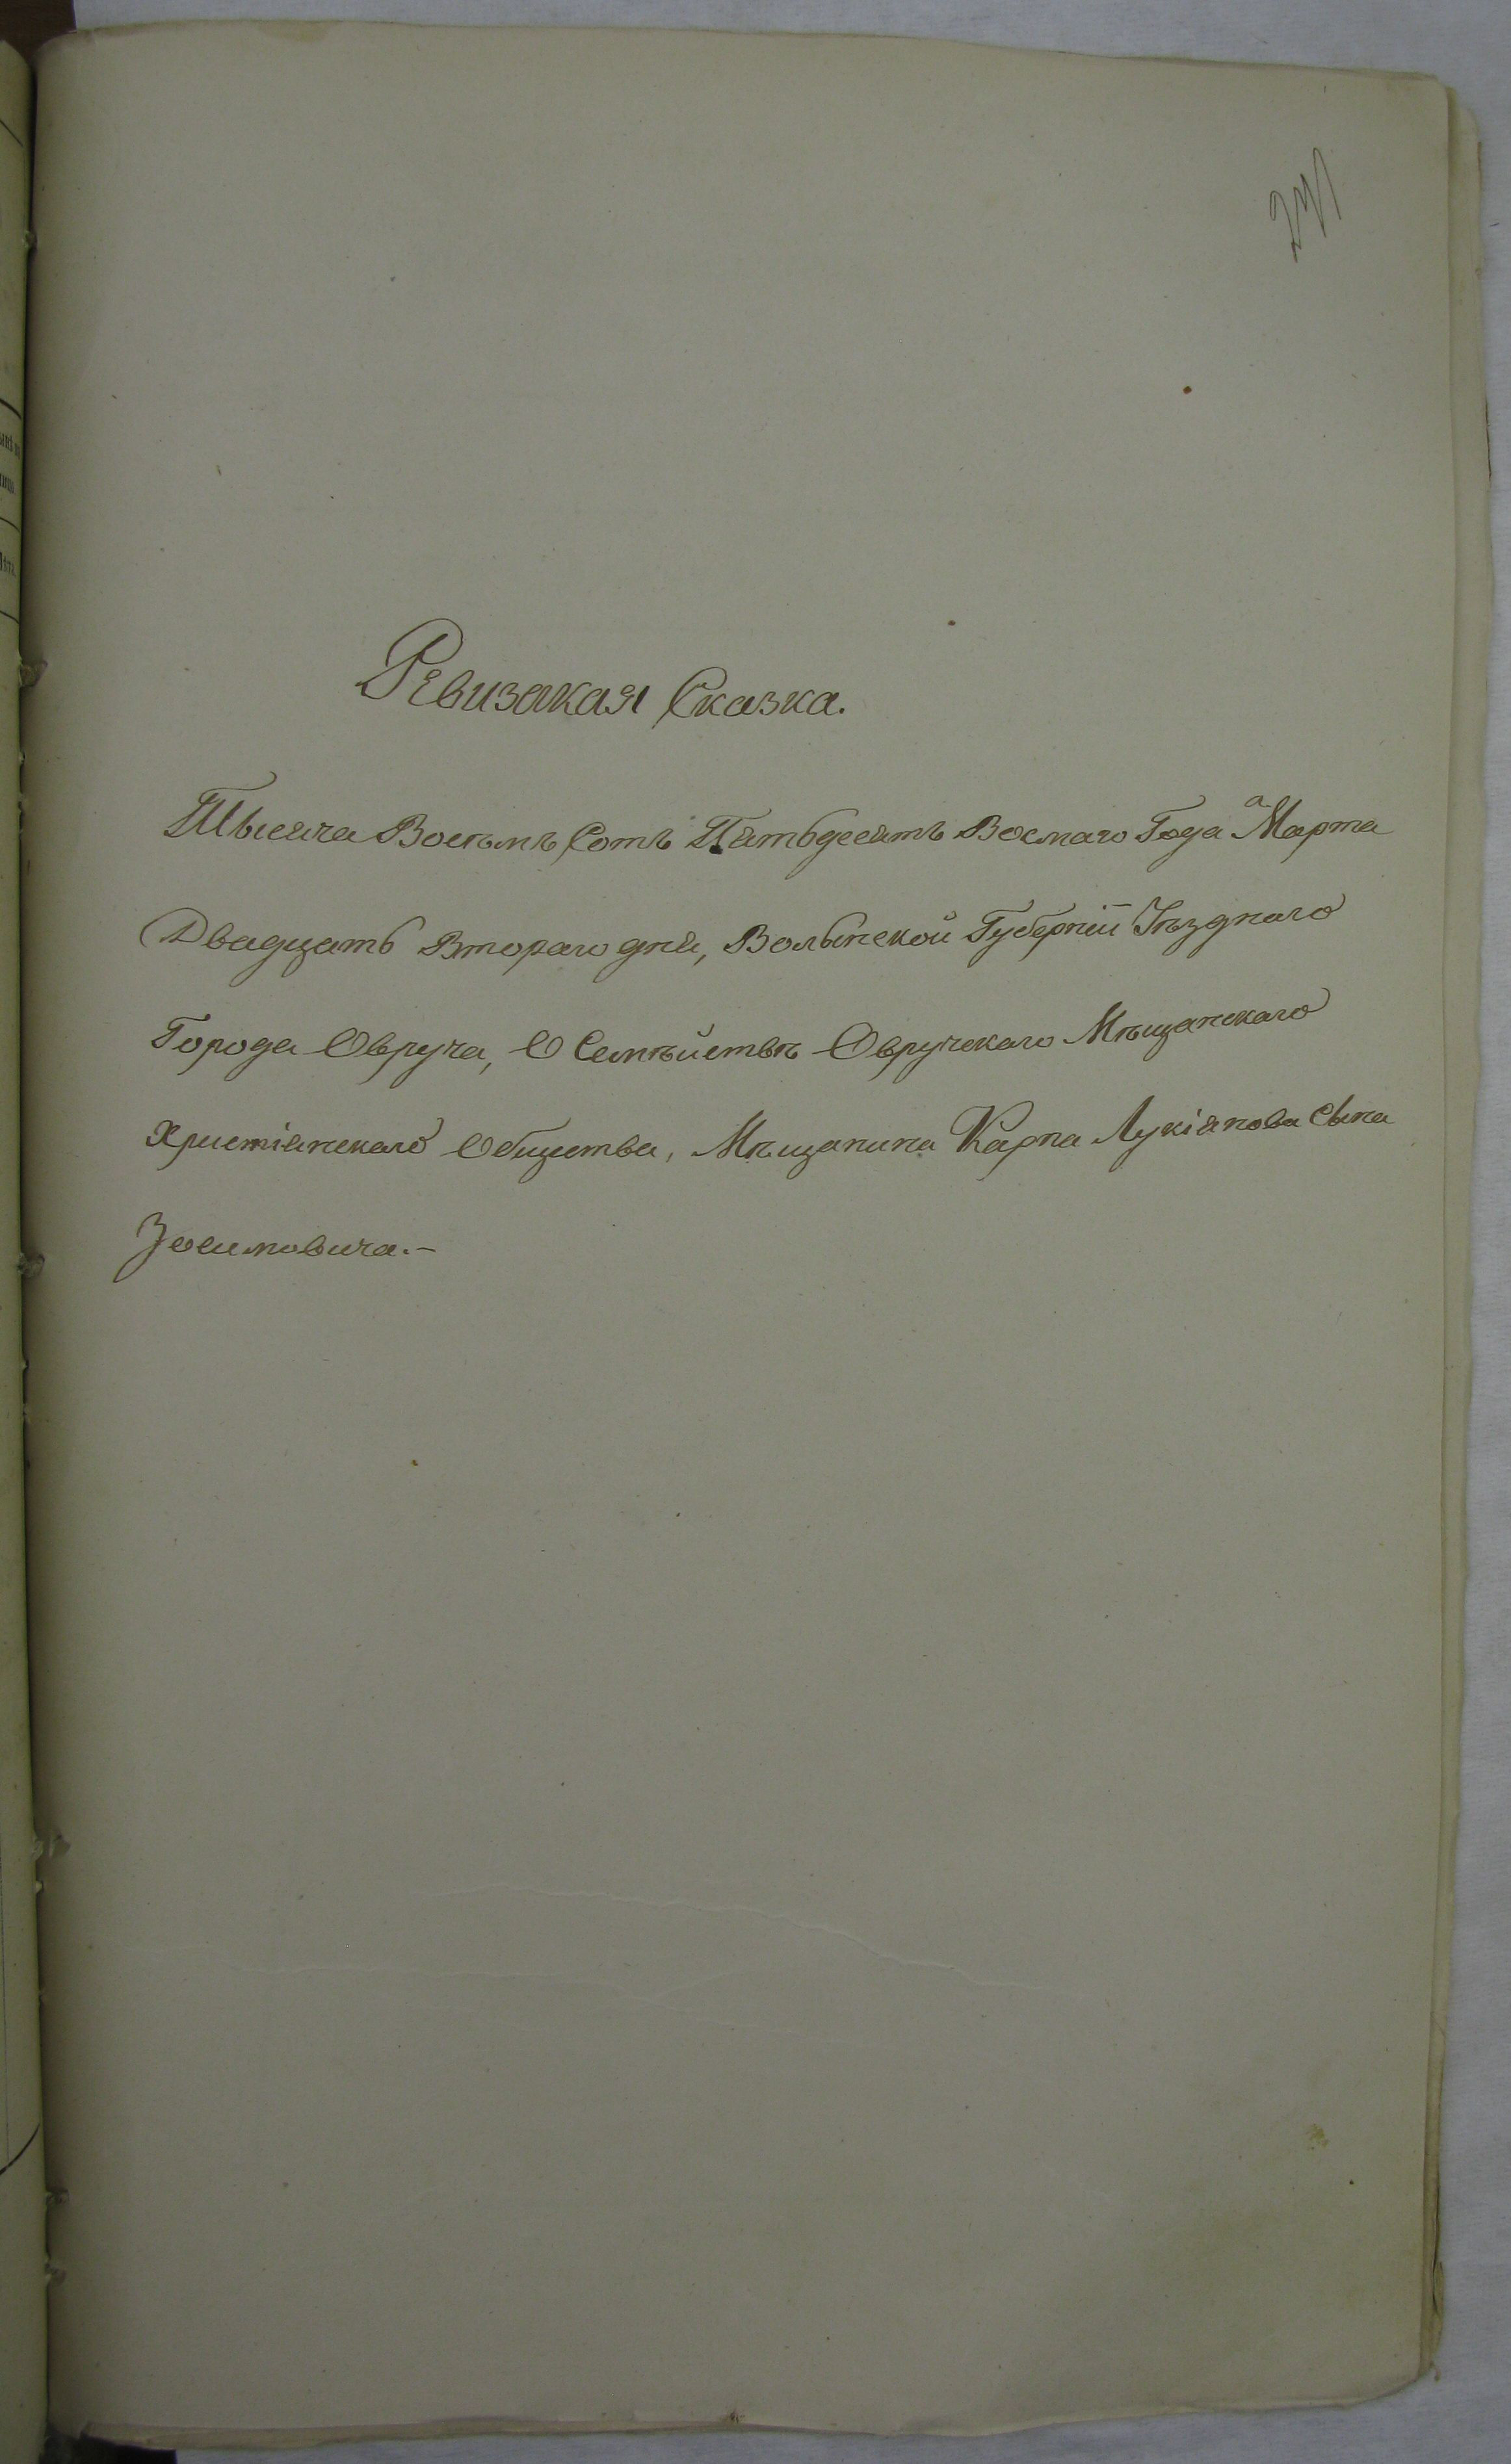 Ревизская Сказка.
Тысяча Восемь Сотъ Пятьдесятъ Восмаго Года Марта
Двадцать Втораго дня, Волынской Губерніи Уѣзднаго
Города Овруча, О Семѣйствѣ Овручскаго Мѣщанскаго
Христіянскаго Общества, Мѣщанина Карпа Лукіянова Сына
Зосимовича.-